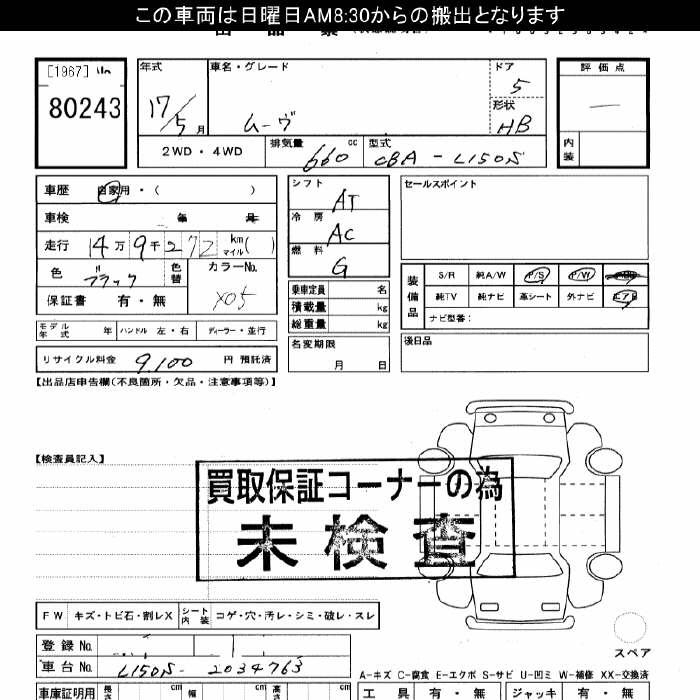 この車両は日曜日AM8:30からの搬出となります
[1967]
80243
年式
17/5 月
車名・グレード
ムーヴ
ドア
5
形状
HB
評価点
内装
2WD・4WD
排気量
660 cc
型式
CBA-L150S
車歴 自家用・( )
車検 年 月
走行 4万9千272 km マイル( )
色 ブラック 色替
カラーNo.
X05
保証書 有・無
シフト
AT
冷房
AC
燃料
G
乗車定員 名
積載量 kg
総重量 kg
セールスポイント
装備品
S/R 純A/W P/S P/W
純TV 純ナビ 革シート 外ナビ エアB
ナビ型番:
モデル年式 年 ハンドル 左・右 ディーラー・並行
リサイクル料金 9,100 円 預託済
名変期限
月 日
後日品
【出品店申告欄(不良箇所・欠品・注意事項等)】
【検査員記入】
買取保証コーナーの為
未検査
FW キズ・トビ石・割レX シート内装 コゲ・穴・汚レ・シミ・破レ・スレ
スペア
登録No.
車台No. L150S-2034763
A-キズ C-腐食 E-エクボ S-サビ U-凹ミ W-補修 XX-交換済
車庫証明用 長さ cm 幅 cm 高さ cm
工具 有・無 ジャッキ 有・無